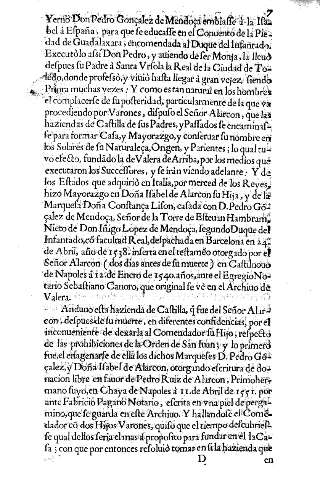 7
Yerno Don Pedro Gonçalez de Mendoça embiasse à la Isa-
bel à España, para que se educasse en el Conuento de la Pie-
dad de Guadalaxara, encomendada al Duque del Infantado.
Executòlo assi Don Pedro, y auiendo de ser Monja, la lleuò
despues su Padre à Santa Vrsola la Real de la Ciudad de To-
ledo, donde professò, y viuiò hasta llegar à gran vejez, siendo
Priora muchas vezes: Y como es tan natural en los hombres
el complacerse de su posteridad, particularmente de la que va
procediendo por Varones, dispuso el Señor Alarcon, que las
haziendas de Castilla de sus Padres, y Passados se encaminas-
se para formar Casa, y Mayorazgo, y conseruar su nombre en
los Solares de su Naturaleça, Origen, y Parientes; lo qual tu-
vo efecto, fundãdo la de Valera de Arriba, por los medios que
executaron los Successores, y se iràn viendo adelante: Y de
los Estados que adquiriò en Italia, por merced de los Reyes,
hizo Mayorazgo en Doña Isabel de Alarcon su Hija, y de la
Marquesa Doña Constança Lison, casada con D. Pedro Gó-
çalez de Mendoça, Señor de la Torre de Esteuan Hambram,
Nieto de Don Iñigo Lopez de Mendoça, segundo Duque del
Infantado, cõ facultad Real, despachada en Barcelona en 24.
de Abril, año de 1538. inserta en el testamẽto otorgado por el
Señor Alarcon (dos dias antes de su muerte) en Castilnouo
de Napoles à 12. de Enero de 1540. años, ante el Egregio No-
tario Sebastiano Canoro, que original se vè en el Archiuo de
Valera.
Andauo esta hazienda de Castilla, q̃ fue del Señor Alar-
con, despues de su muerte, en diferentes confidencias, por el
inconueniente de dexarla al Comendador su Hijo, respecto
de las prohibiciones de la Orden de San Iuan; y lo primero
fue, el enagenarse de ella los dichos Marqueses D. Pedro Gõ-
çalez, y Doña Isabel de Alarcon, otorgando escritura de do-
nacion libre en fauor de Pedro Ruiz de Alarcon, Primoher-
mano suyo, en Chaya de Napoles à 11. de Abril de 1551. por
ante Fabriciò Paganò Notario, escrita en vna piel de perga-
mino, que se guarda en este Archiuo. Y hallandose el Come-
dador cõ dos Hijos Varones, quiso que el tiempo descubries-
se qual dellos seria el mas à proposito para fundar en èl la Ca-
sa; con que por entonces resoluiò tomar en si la hazienda que
D
en